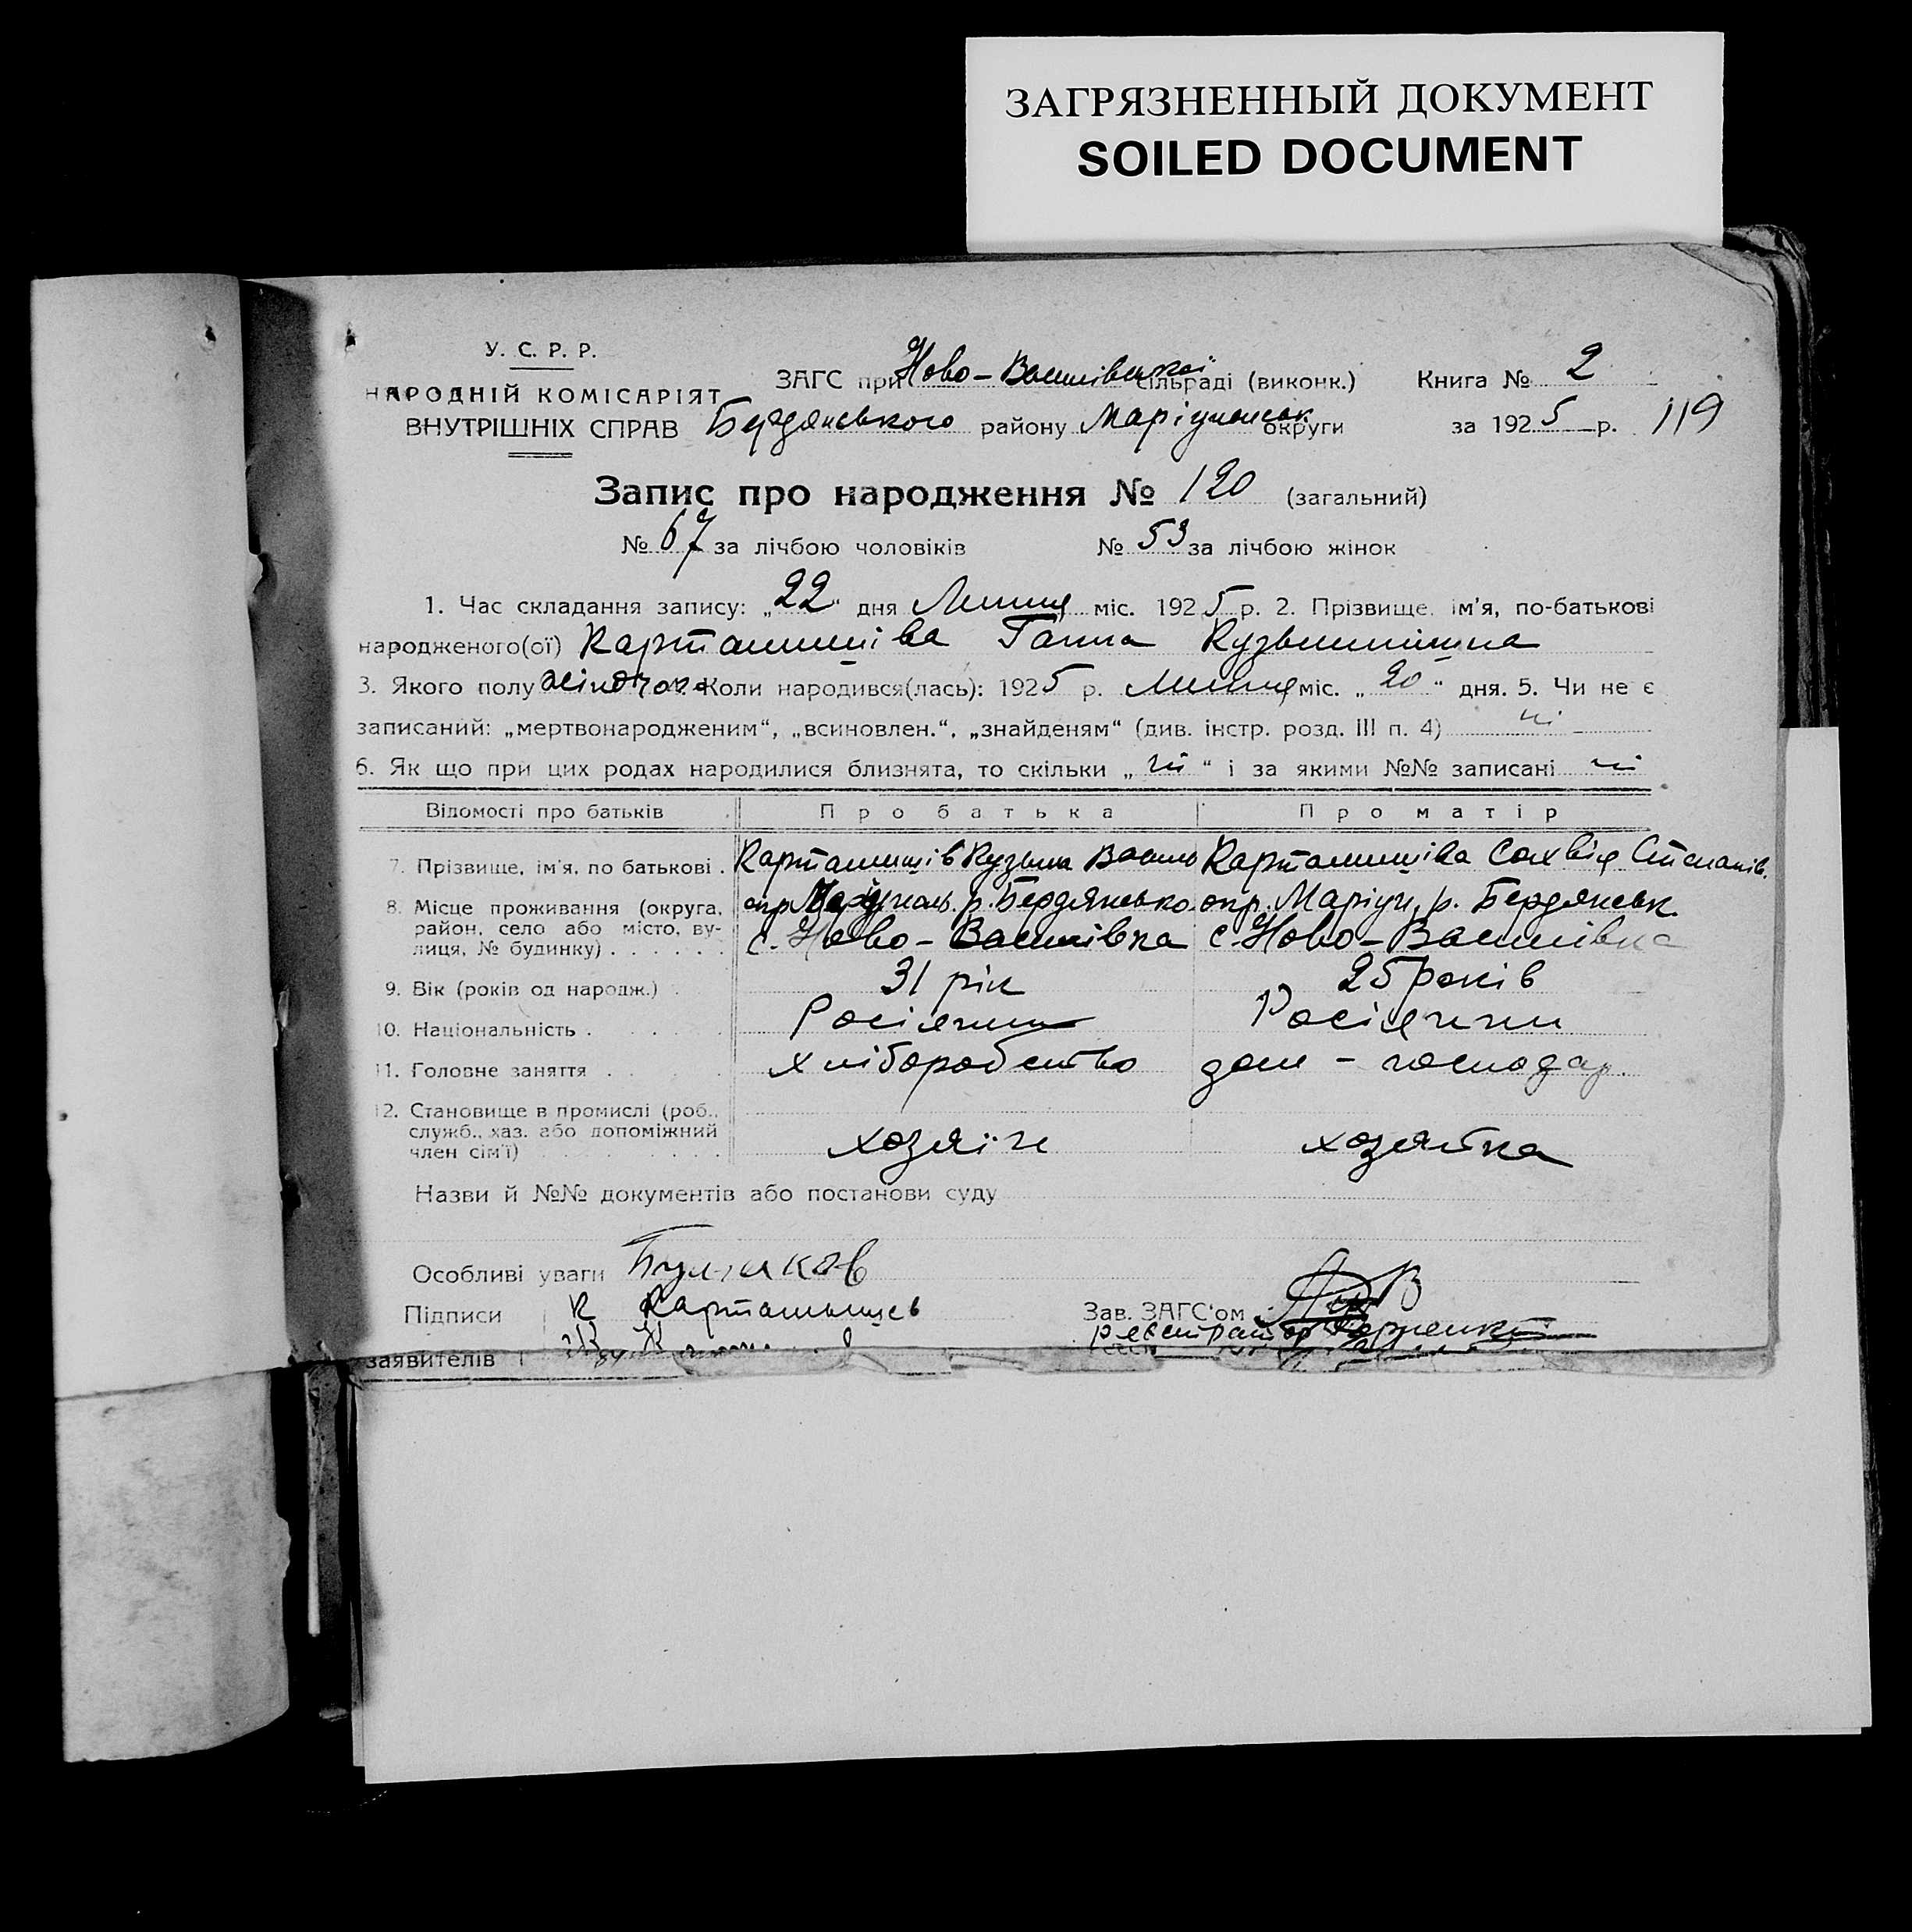 ЗАГРЯЗНЕННЫЙ ДОКУМЕНТ
SOILED DOCUMENT
У. С. Р. Р.
НАРОДНІЙ КОМІСАРІЯТ
ВНУТРІШНІХ СПРАВ
ЗАГС при Ново-Василівській сільраді (виконк.) Книга № 2
Бердянського району Маріупольськ округи за 1925 р. 119
Запис про народження № 120 (загальний)
№ 67 за лічбою чоловіків № 53 за лічбою жінок
1. Час складання запису: „22“ дня Липця міс. 1925 р. 2. Прізвище, ім'я, по-батькові
народженого(ої) Карташишіва Ганна Кузьминішна
3. Якого полу жіночого Коли народився(лась): 1925 р. Липця міс. „20“ дня. 5. Чи не є
записаний: „мертвонародженим“, „всиновлен.“, „знайденям“ (див. інстр. розд. III п. 4) ні
6. Як що при цих родах народилися близнята, то скільки „ні“ і за якими №№ записані ні
Відомості про батьків Про батька Про матір
7. Прізвище, ім'я, по батькові . Карташишів Кузьма Васил Карташишіва Сахвія Степанів.
8. Місце проживання (округа, район, село або місто, вулиця, № будинку) . . . . . .
окр. Маріуполь. р. Бердянсько. окр. Маріуп, р. Бердянськ.
с. Ново-Василівка с. Ново-Василівка
9. Вік (років од народж.) . 31 рік 25 років
10. Національність . . . . Росіянин Росіянин
11. Головне заняття . . . . хліборобство дом - господар.
12. Становище в промислі (роб., служб., хаз. або допоміжний член сім'ї)
хозяїн хозяйка
Назви й №№ документів або постанови суду
Особливі уваги Булгаков
Підписи К Карташищев Зав. ЗАГС'ом
реєстратор
заявителів